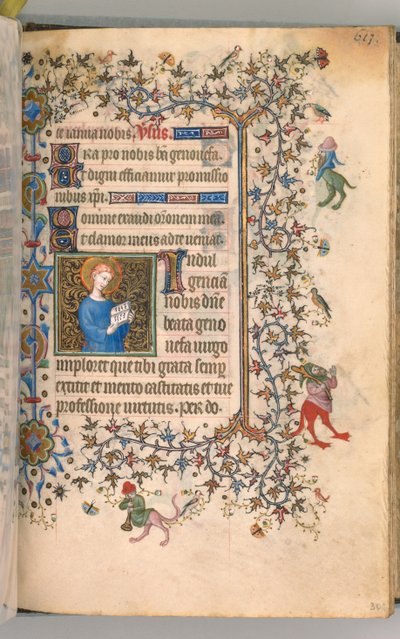 617.
et ianua nobis. Vsus.
Ora pro nobis bā genouefa.
Et digni efficiamur promissio
nibus xp̄i.
Domine exaudi orōnem mea
Et clamor meus ad te veniat.
Indul
genciā
nobis dn̄e
beata geno
uefa uirgo
imploret que tibi grata semp̄
extitit et merito castitatis et tue
professione uirtutis. Per do.